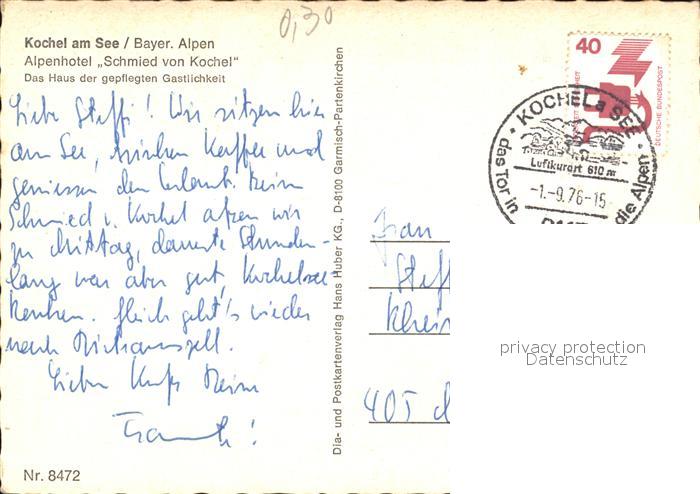 0,30
Kochel am See / Bayer. Alpen
Alpenhotel „Schmied von Kochel“
Das Haus der gepflegten Gastlichkeit
Liebe Steffi! Wir sitzen hier
am See, trinken Kaffee und
geniessen den Urlaub. Beim
Schmied v. Kochel aßen wir
zu Mittag, dauerte Stunden-
lang war aber gut, Kochelsee
Renken. Gleich geht's wieder
nach
Lieber Kuß Deine
Dia- und Postkartenverlag Hans Huber KG., D-8100 Garmisch-Partenkirchen
40
DEUTSCHE BUNDESPOST
KOCHEL a SEE
Luftkurort 610 m
-1.-9.76-15
das Tor in die Alpen
Frau
Steff
405
privacy protection
Datenschutz
Nr. 8472